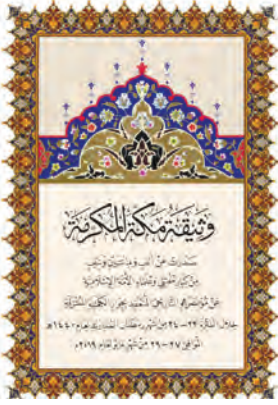 وثيقة مكة المكرمة
صدرت عن ألف ومائتين وخمس
من كبار مفتي وعلماء الأمة الإسلامية
عن مؤتمرهم التاريخي المنعقد بجوار الكعبة المشرفة
خلال الفترة ٢٢-٢٤ من شهر رمضان المبارك لعام ١٤٤٠هـ
الموافق ٢٧-٢٩ من شهر مايو لعام ٢٠١٩م